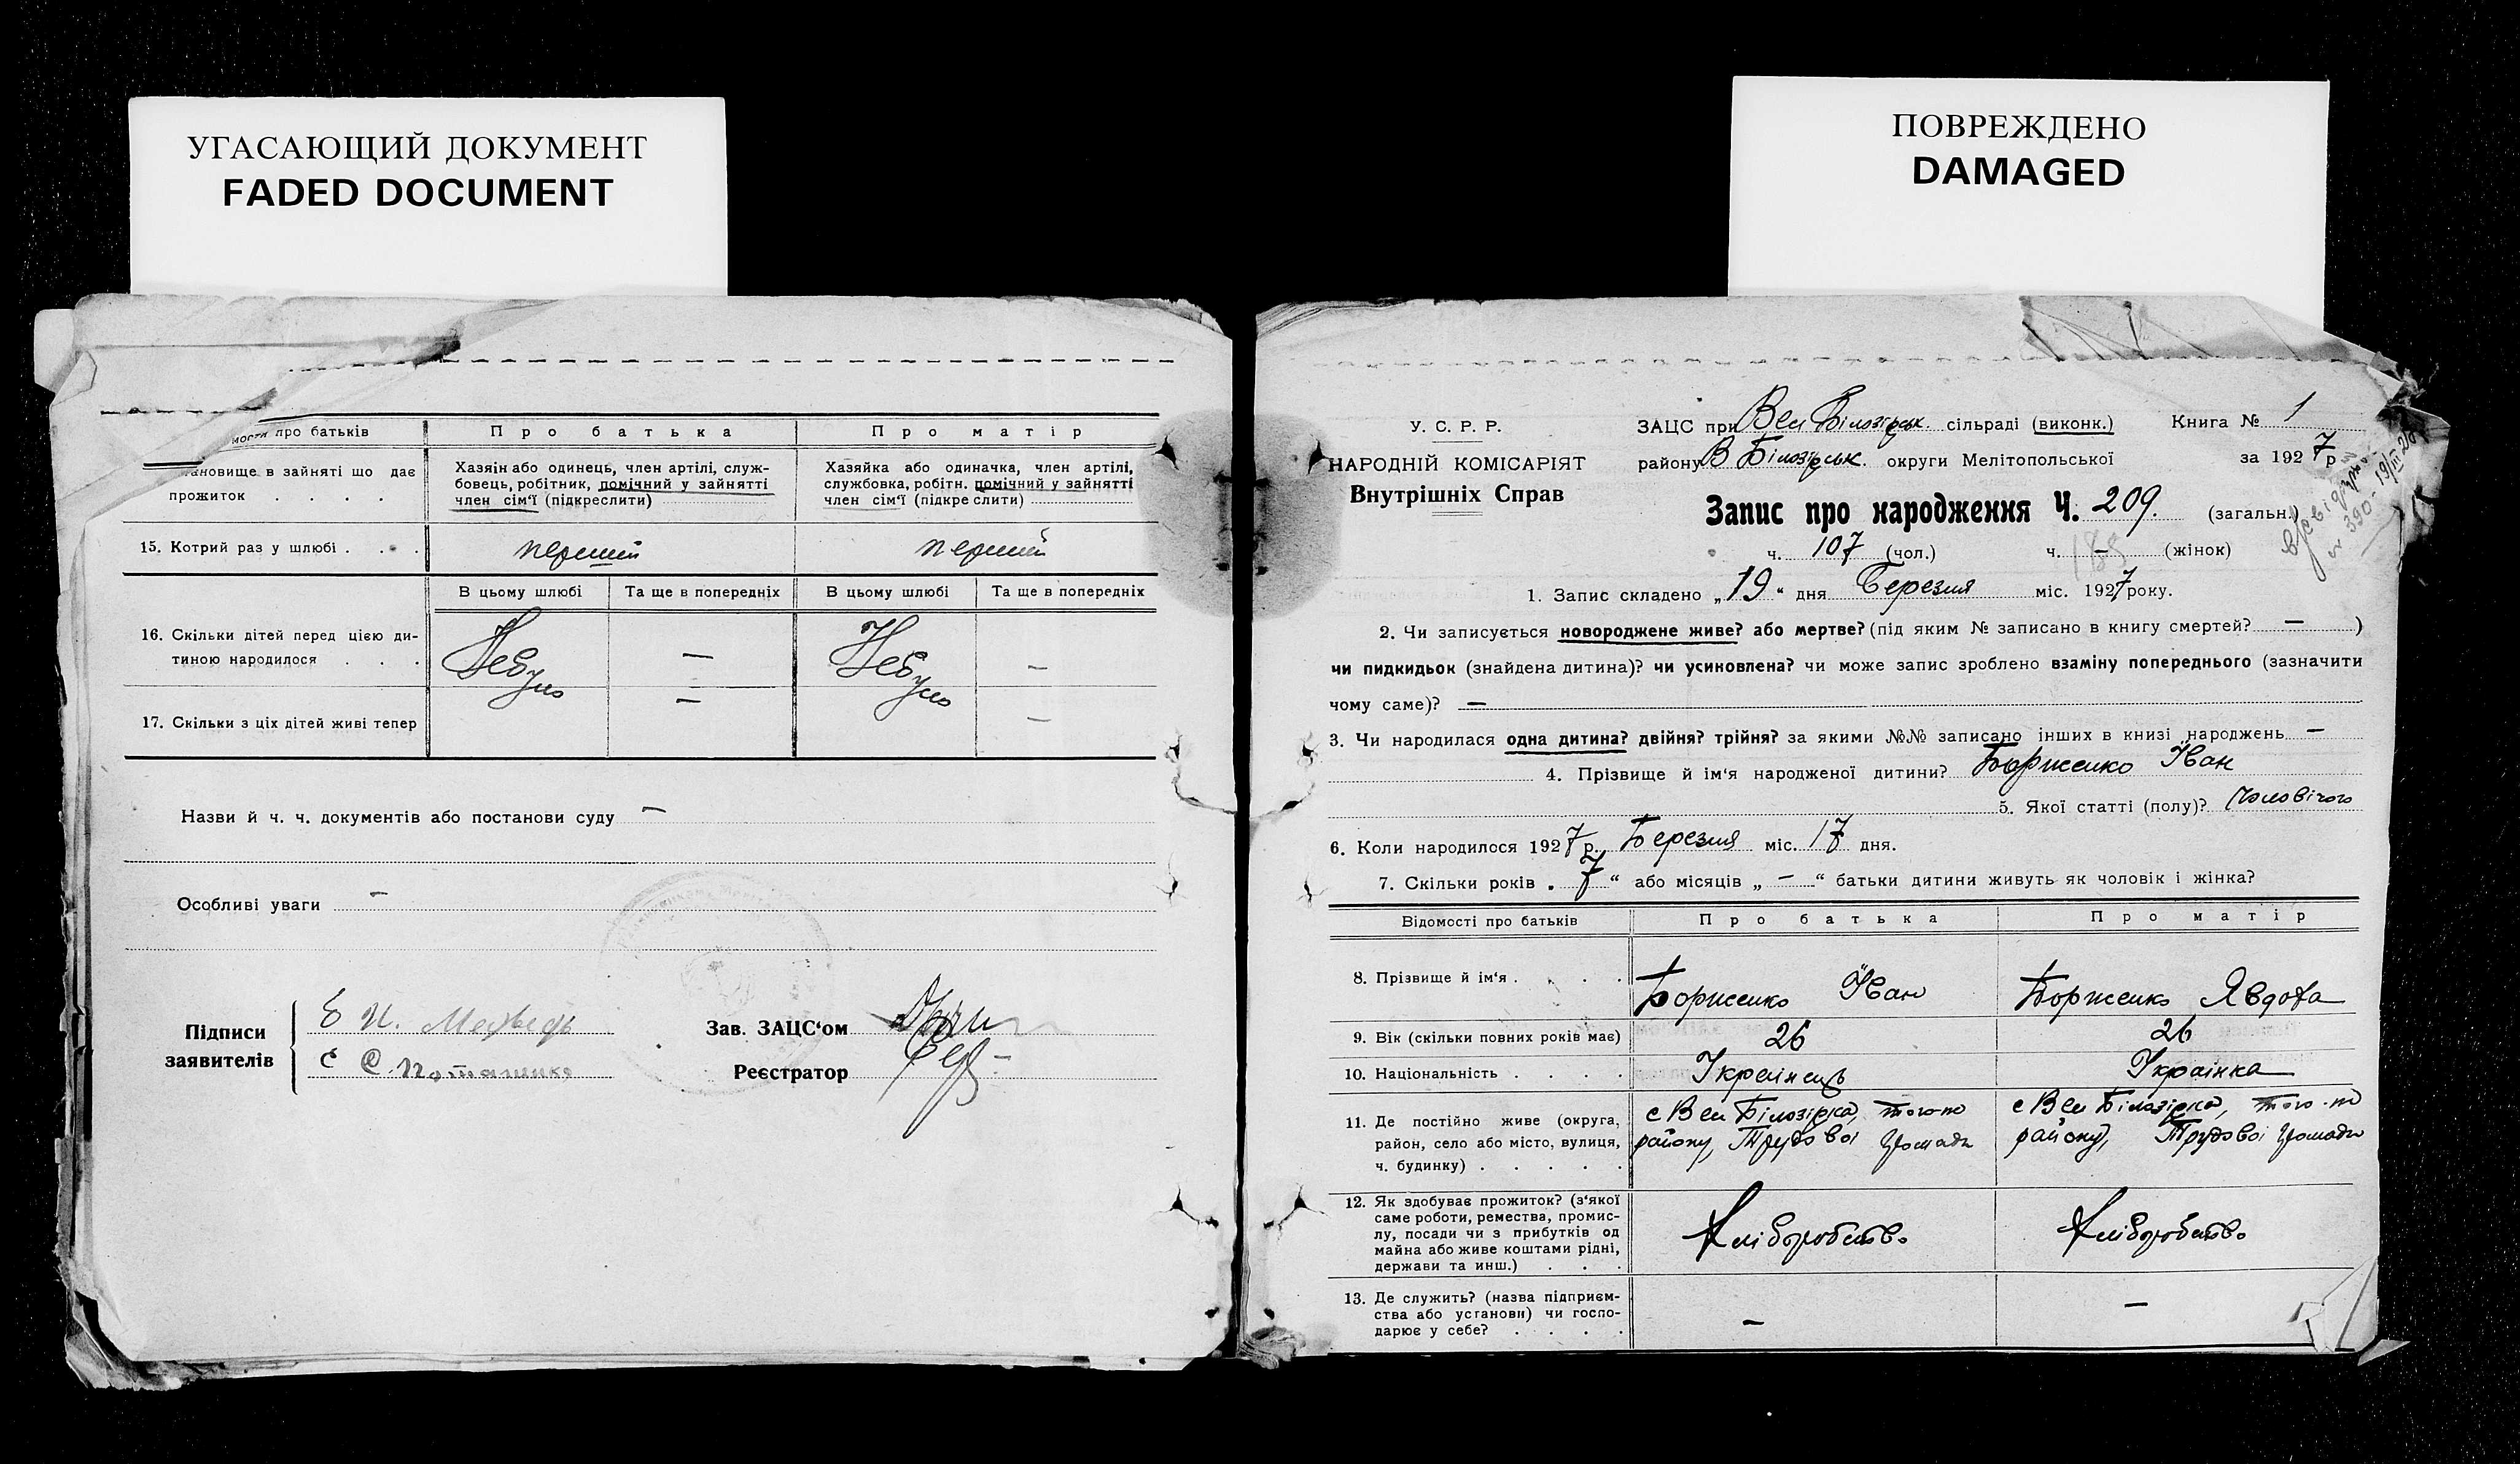 УГАСАЮЩИЙ ДОКУМЕНТ
FADED DOCUMENT
ПОВРЕЖДЕНО
DAMAGED
мости про батьків
Про батька
Про матір
тановище в зайняті що дає
прожиток . . . .
Хазяін або одинець, член артілі, служ-
бовець, робітник, помічний у зайнятті
член сім'ї (підкреслити)
Хазяйка або одиначка, член артілі,
службовка, робітн. помічний у зайнятті
член сім'ї (підкреслити)
15. Котрий раз у шлюбі . . . .
перший
перший
В цьому шлюбі
Та ще в попередніх
В цьому шлюбі
Та ще в попередніх
16. Скільки дітей перед цією ди-
тиною народилося . . .
Небуло
—
Небуло
—
17. Скільки з ціх дітей живі тепер
—
—
Назви й ч. ч. документів або постанови суду —
Особливі уваги —
Підписи
заявителів
И. Медведь
Зав. ЗАЦС'ом
Реєстратор
У. С. Р. Р.
НАРОДНІЙ КОМІСАРІЯТ
Внутрішніх Справ
ЗАЦС при Вел Білозірськ. сільраді (виконк.)
Книга № 1
району В Білозірськ. округи Мелітопольської
за 1927 р.
Запис про народження Ч. 209. (загальн.)
ч. 107 (чол.) ч. — (жінок)
1. Запис складено „19" дня Березня міс. 1927 року.
2. Чи записується новороджене живе? або мертве? (під яким № записано в книгу смертей? — )
чи пидкидьок (знайдена дитина)? чи усиновлена? чи може запис зроблено взаміну попереднього (зазначити
чому саме)? —
3. Чи народилася одна дитина? двійня? трійня? за якими №№ записано інших в книзі народжень —
4. Прізвище й ім'я народженої дитини? Борисенко Іван
5. Якої статті (полу)? Чоловічого
6. Коли народилося 1927 р. Березня міс. 17 дня.
7. Скільки років „ 7 " або місяців „ — " батьки дитини живуть як чоловік і жінка?
Відомості про батьків
Про батька
Про матір
8. Прізвище й ім'я . . . .
Борисенко Іван
Борисенко Явдоха
9. Вік (скільки повних років має)
26
26
10. Національність . . . .
Украінець
Украінка
11. Де постійно живе (округа,
район, село або місто, вулиця,
ч. будинку) . . . . .
с Вел Білозірка, того-ж
району, Трудової громади
с Вел Білозірка, того-ж
району, Трудової громади
12. Як здобуває прожиток? (з'якої
саме роботи, ремества, промис-
лу, посади чи з прибутків од
майна або живе коштами рідні,
держави та инш.) . . .
Хліборобство
Хліборобство
13. Де служить? (назва підприєм-
ства або установи) чи госпо-
дарює у себе? . . . .
—
—